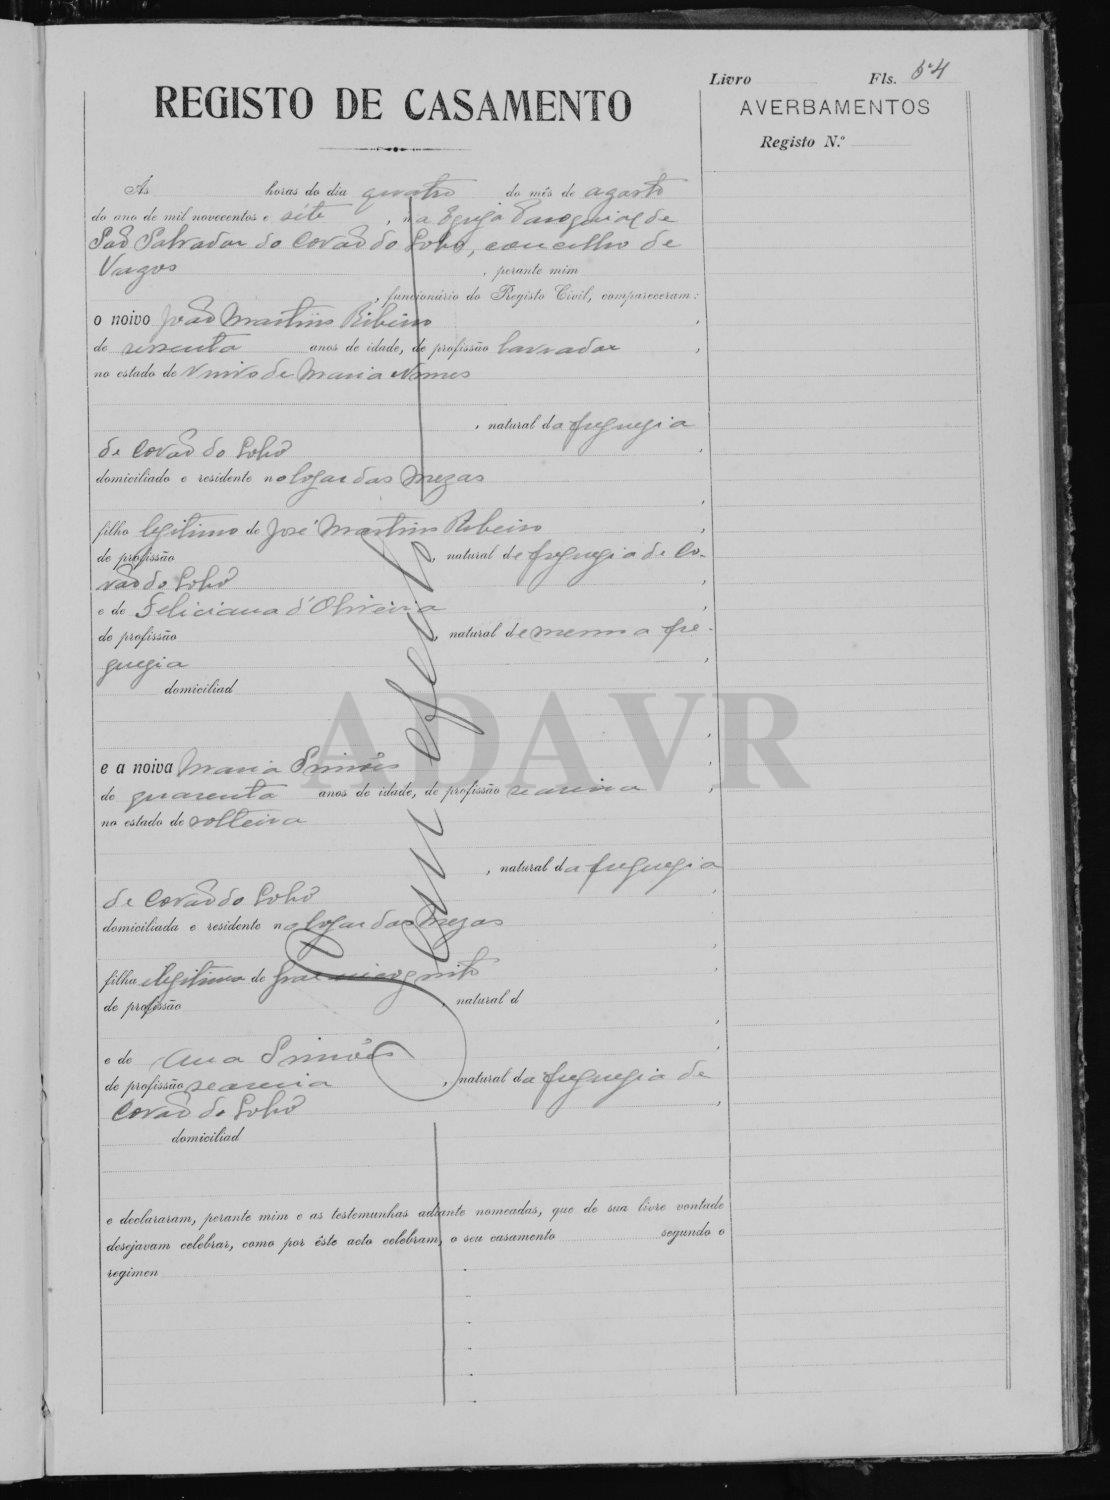 Livro Fls. 54
REGISTO DE CASAMENTO
AVERBAMENTOS
Registo N.º
Ás horas do dia quatro do mês de agosto
do ano de mil novecentos e séte, na Egreja Paroquial de
São Salvador do Covão do Lobo, concelho de
Vagos, perante mim
, funcionário do Registo Civil, compareceram:
o noivo João Martins Ribeiro,
de sessenta anos de idade, de profissão lavrador,
no estado de viuvo de Maria Nunes
, natural da freguezia
de Covão do Lobo,
domiciliado e residente no logar das Mezas
,
filho legitimo de José Martins Ribeiro,
de profissão, natural de freguezia de Co-
vão do Lobo,
e de Feliciana d'Oliveira,
de profissão, natural de mesma fre-
guezia,
domiciliad
,
Sem efeito
ADAVR
e a noiva Maria Simões,
de quarenta anos de idade, de profissão,
no estado de solteira
, natural da freguezia
de Covão do Lobo,
domiciliada e residente no logar das Mezas
,
filha de pae incognito,
de profissão, natural d
,
e de Ana Simões,
de profissão, natural da freguezia de
Covão do Lobo,
domiciliad
e declararam, perante mim e as testemunhas adiante nomeadas, que de sua livre vontade
desejavam celebrar, como por êste acto celebram, o seu casamento segundo o
regimen.